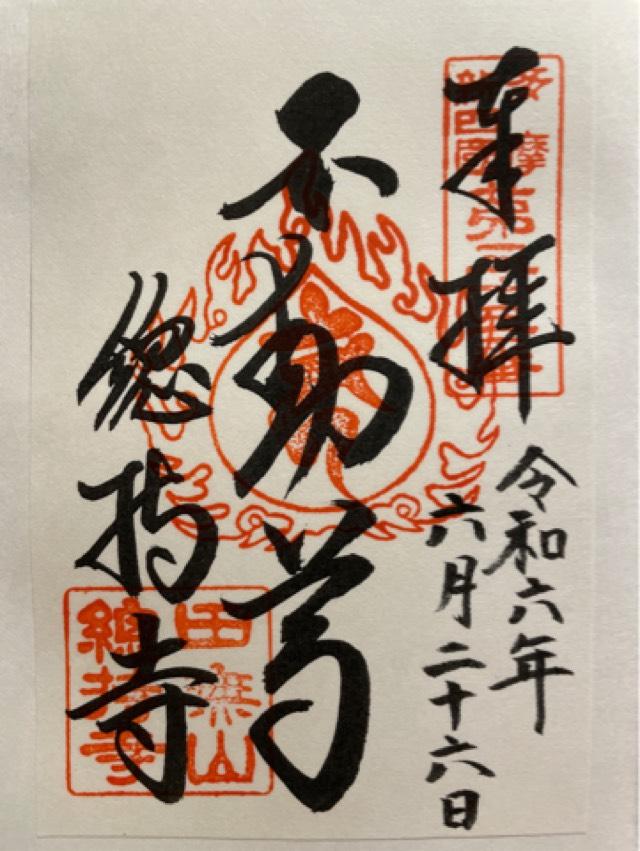 奉拝
令和六年
六月二十六日
不動尊
總持寺
多摩
第
田無山
總持寺